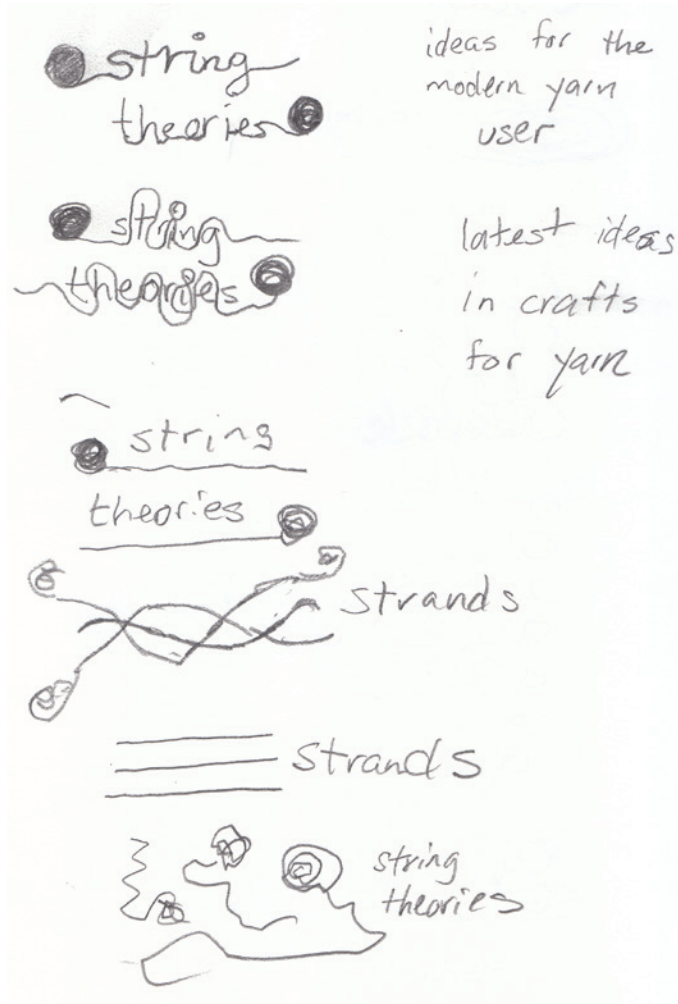 string
theories
ideas for the
modern yarn
user
string
theories
latest ideas
in crafts
for yarn
string
theories
strands
strands
string
theories